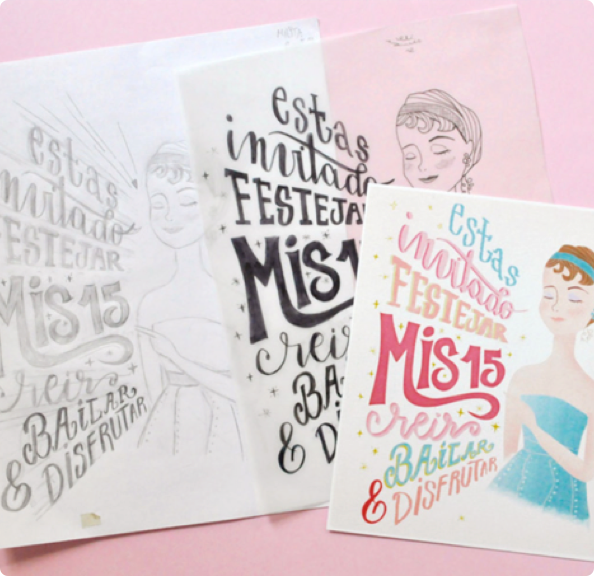 estas
invitado
FESTEJAR
Mis 15
creir
BAILAR
& DISFRUTAR
estas
invitado
FESTEJAR
Mis 1
crei
BA
& Di
estas
invitado
FESTEJAR
Mis 15
creir
BAILAR
& DISFRUTAR